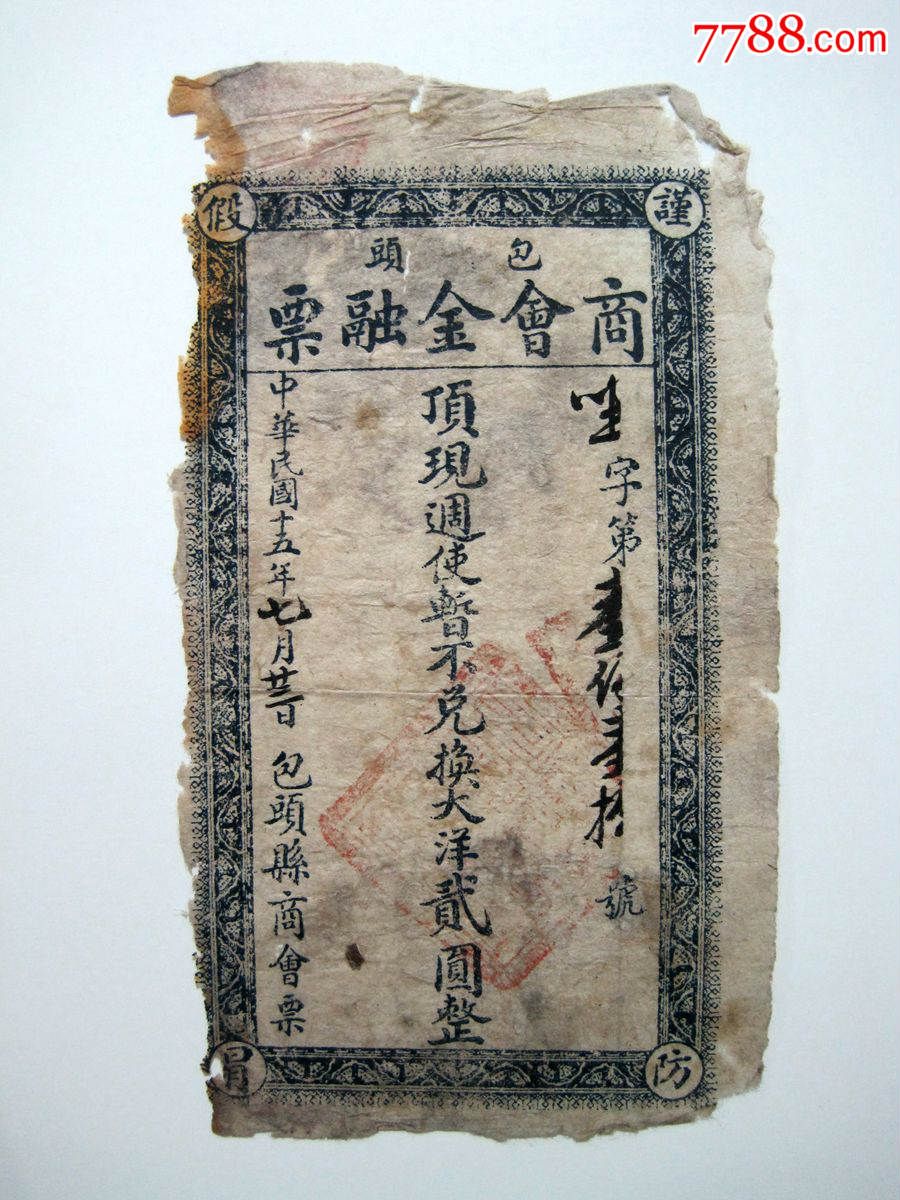 7788.com
謹防假冒
包頭
商會金融票
坐字第壹佰壹拾號
頂現週使暫不兌換大洋貳圓整
中華民國十五年七月廿三日 包頭縣商會票